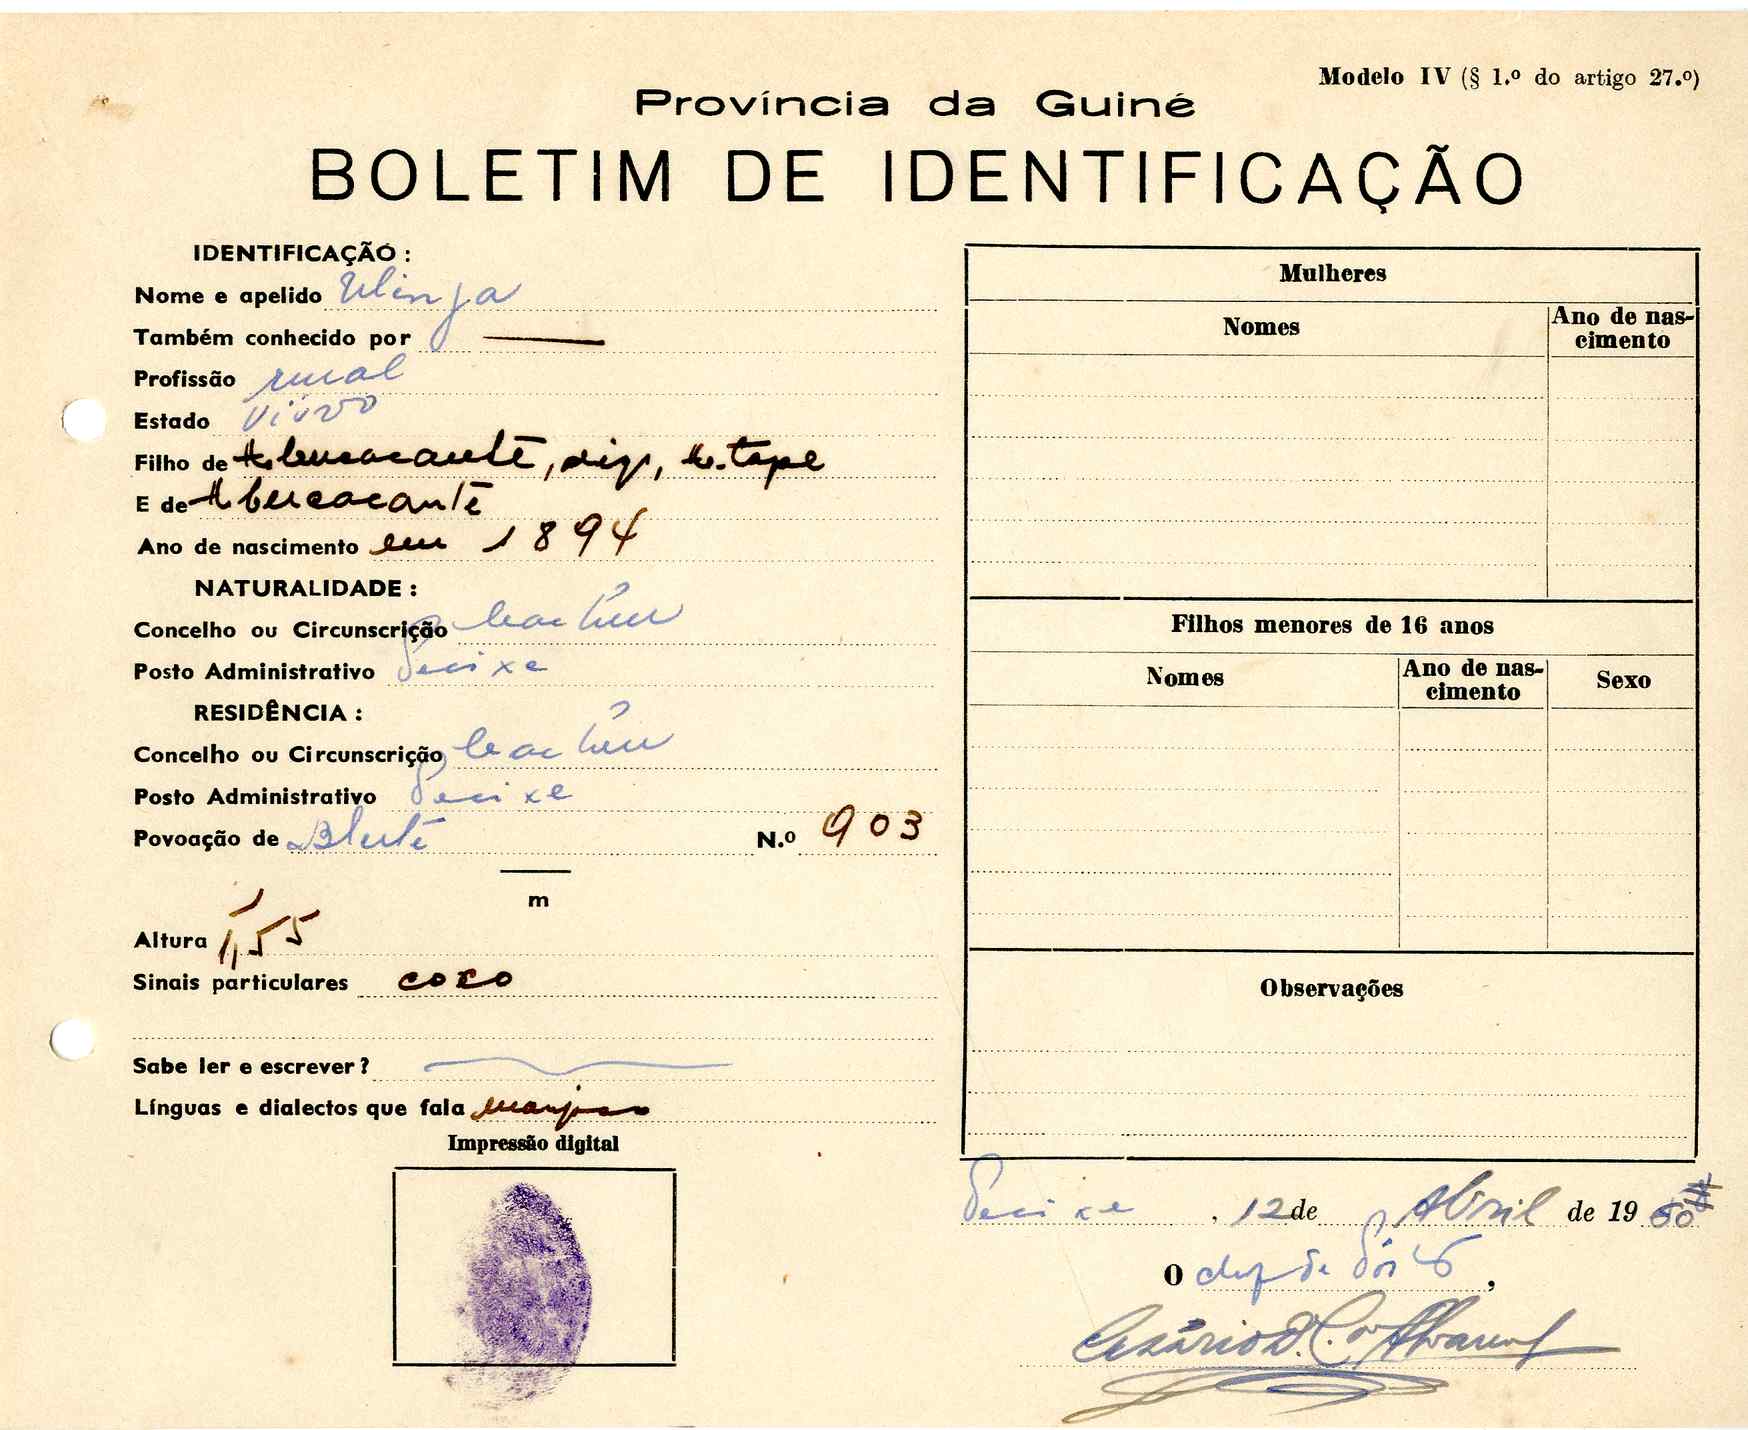 Modelo IV (§ 1.º do artigo 27.º)
Província da Guiné
BOLETIM DE IDENTIFICAÇÃO
IDENTIFICAÇÃO :
Nome e apelido Ulinja
Também conhecido por
Profissão rural
Estado Viúvo
Filho de
E de
Ano de nascimento em 1894
NATURALIDADE :
Concelho ou Circunscrição Cacheu
Posto Administrativo Pecixe
RESIDÊNCIA :
Concelho ou Circunscrição Cacheu
Posto Administrativo Pecixe
Povoação de N.º 903
m
Altura 1,55
Sinais particulares
Sabe ler e escrever ?
Línguas e dialectos que fala
Impressão digital
Mulheres
Nomes Ano de nas-
cimento
Filhos menores de 16 anos
Nomes Ano de nas-
cimento Sexo
Observações
Pecixe, 12 de Abril de 19 60
O chefe de Pôsto,